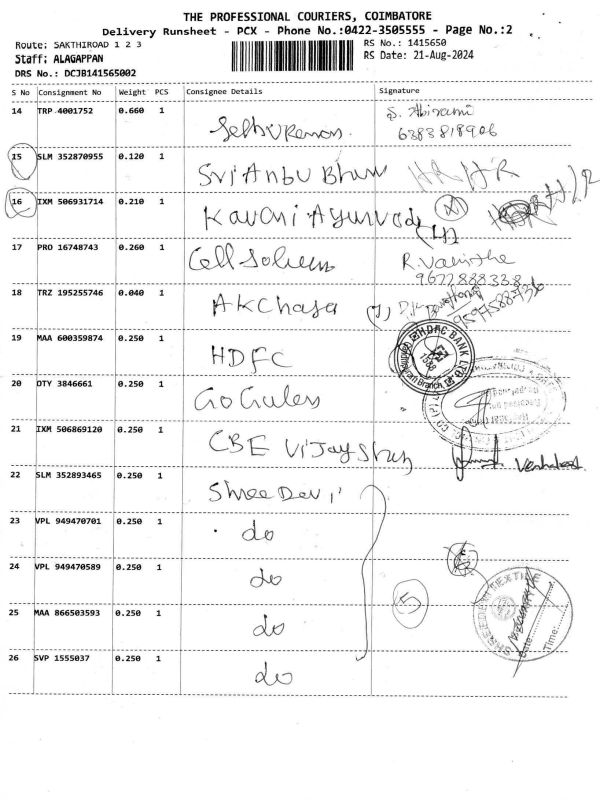 THE PROFESSIONAL COURIERS, COIMBATORE
Delivery Runsheet - PCX - Phone No.:0422-3505555 - Page No.:2
Route: SAKTHIROAD 1 2 3
RS No.: 1415650
Staff: ALAGAPPAN
RS Date: 21-Aug-2024
DRS No.: DCJB141565002
S No Consignment No Weight PCS Consignee Details Signature
14 TRP 4001752 0.660 1 S. Abirami
6383818906
15 SLM 352870955 0.120 1 Sri Anbu Bhavan
16 IXM 506931714 0.210 1 Kavari Ayurveda
17 PRO 16748743 0.260 1 Cell Soliens R. Vanitha
9677888338
18 TRZ 195255746 0.040 1 AK Chaya
19 MAA 600359874 0.250 1 HDFC HDFC BANK LTD
20 OTY 3846661 0.250 1
21 IXM 506869120 0.250 1 CBE Vijay Venkatesh
22 SLM 352893465 0.250 1 Shree Devi
23 VPL 949470701 0.250 1 do
24 VPL 949470589 0.250 1 do
5
25 MAA 866503593 0.250 1 do
SHREEDEVI TEXTILE
Date
Time:
26 SVP 1555037 0.250 1 do